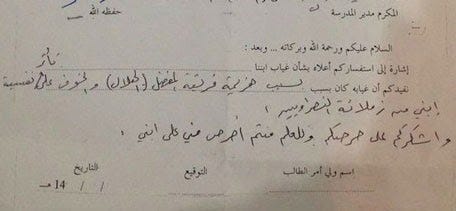 المكرم مدير المدرسة
حفظه الله
السلام عليكم ورحمة الله وبركاته ... وبعد :
إشارة إلى استفساركم أعلاه بشأن غياب ابننا
نفيدكم أن غيابه كان بسبب بسبب هزيمة فريقه المفضل (الهلال) والخوف على نفسية
إبني من زملائه النصراويين
و اشكركم على حرصكم وللعلم منتم أحرص مني على ابني .
اسم ولي أمر الطالب التوقيع التاريخ
/ / 14 هـ